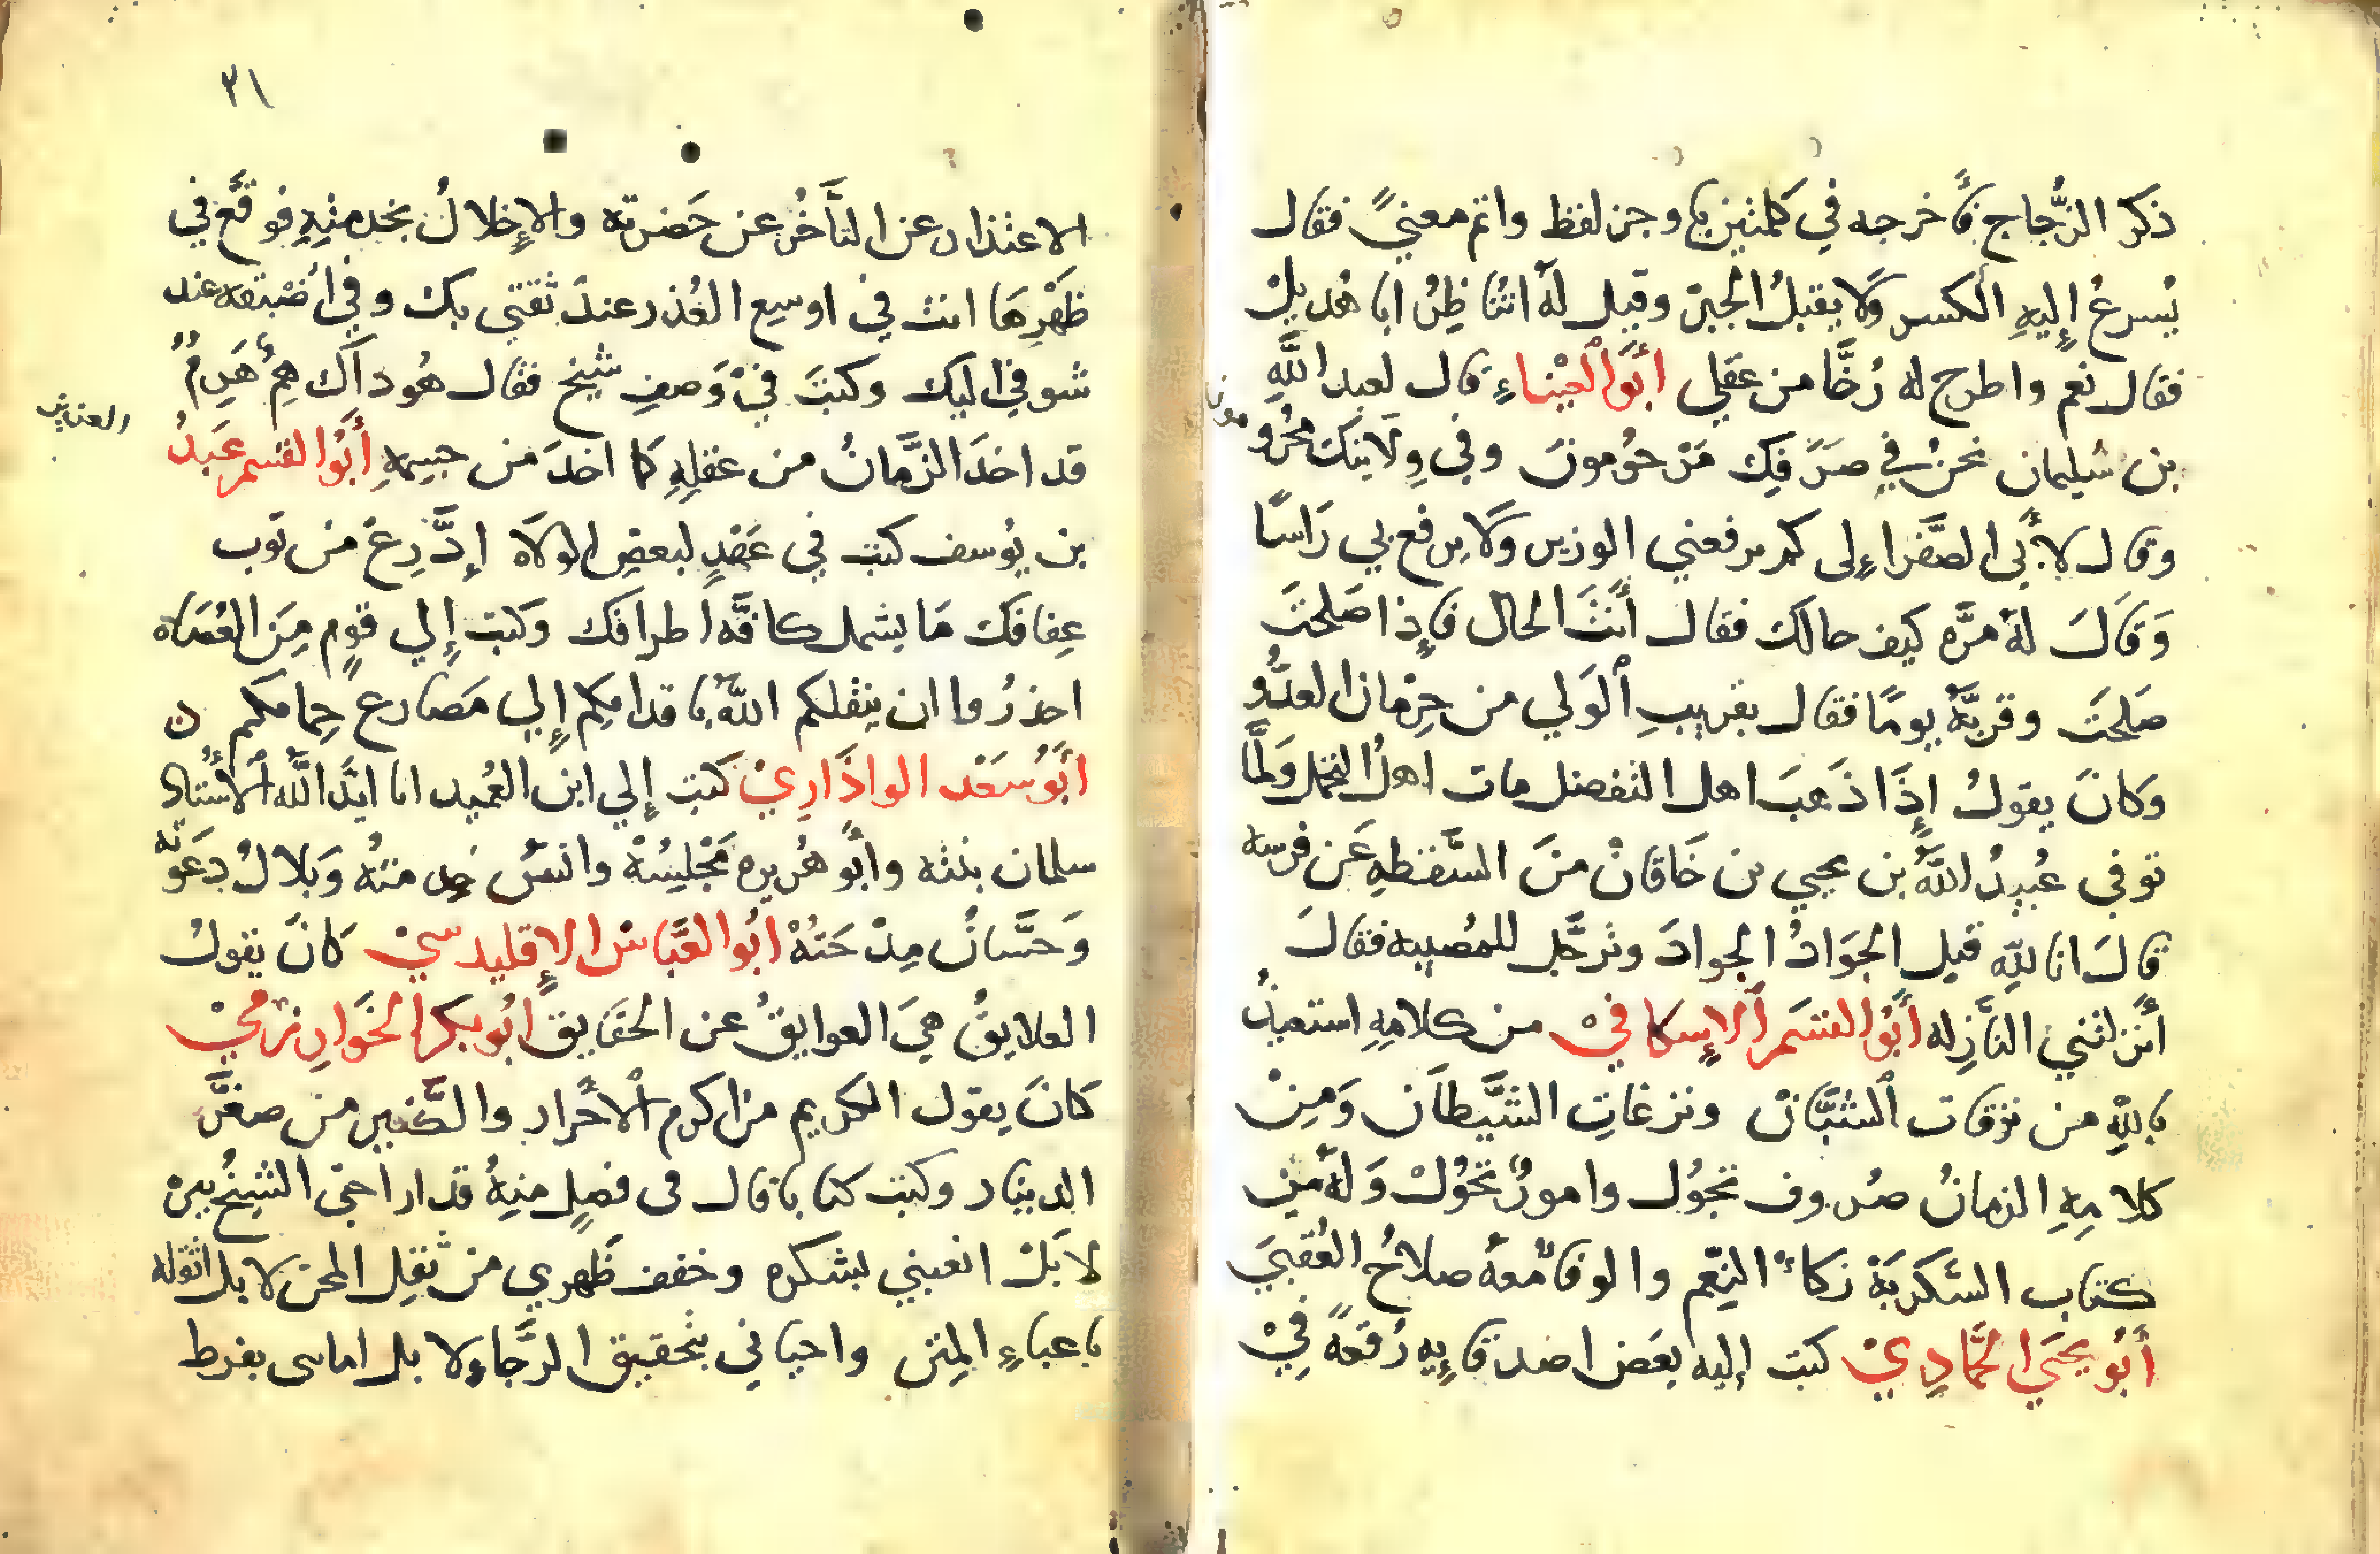 ذكر الزُّجاج فأخرجه في كلمتين بأوجز لفظ واتم معنيً فقال
يُسرعُ إليهِ ألكسر وَلا يقبلُ الجبرَ وقيل لهُ اتُناظِرُ ابا هُديلْ
فقال نعم واطرح له رُخَّا من عقلي أبُوالعيْناءِ قال لعبد اللَّهِ
بن سُليمان نحنُ في صرَفِك مَرْحُومونَ وفي وِلَايتكَ محْرُو
مونا
وقال لأبي الصَّقر اءِلى كم يرفعني الوزير وَلا يرفع بي رَاسًا
وَقَالَ لهُ مرَّه كيف حالك فقال أنتَ الحال فإذا صَلحتَ
صَلحَتَ وقربَّهُ يومًا فقال بقريبِ ألوَلي من حِرْمان العدُّو
وَكانَ يقولُ إذَا ذَهبَ اهل التفضل مات اهلُ التجمل وَلمَّا
توفي عُبيدُ اللَّهِ بن يحيي بن خَاقانْ منَ السَّقطهِ عَن فرسه
قالَ انا للهِ قيل الجوَادُ الجوادَ وتَرجَّل للمُصيبه فقالَ
أنزلتني النَّازِله أبُو القسَم ألإسكافيْ من كلامِهِ استعيذُ
باللهِ من نزقات ألشبَّان ونزغاتِ الشَّيطان وَمِنْ
كلامِهِ الزمانُ صُروف تجوُل وامورٌ تحوُلْ وَلهُ مِن
كتاب السَّكريَةْ زكاءُ النِعّم والوفاءُ معهُ صلاحُ العُقبيَ
أبُو يحيَ الحَمَّادِيْ كتب إليه بعَض اصدقايِهِ رُقعةً فيْ
٣١
الاعتذار عن التأخُرِ عن حَضرته والإخلالُ بخدمتِهِ فوقَّع في
ظَهْرِهَا انت في اوسِع العُذر عندَ ثقتي بك وفي أضَيقه عند
شوقي اليك وكتبَ فيْ وَصفِ شيخ فقال هُو ذآك هِمٌ هَرِمٌ
قد اخدَ الزَّمانُ من عقلِهِ كما اخدَ من جسمهِ أبُوا لقسم عَبدُ
العزيز
بن يوُسف كتب في عَهْدٍ لبعضِ الولاَه إدَّرِعْ من ثوب
عِفافكَ مَا يشمل كافَّه اطرافَك وَكتب إلي قومٍ مِنَ العُصَاه
احذرُوا ان ينقلكم اللهُ باقدامِكم إلي مَصارع حِمامكم ن
أبَوُسَعْد الواذَارِيْ كتب إلي ابن العُميد انا ايَّدَ اللَّه ألاُستاد
سلمان بنته وأبُو هُريره مجْلِسُهْ وانسُ خدمتهُ وَبلالُ دعَوَته
وَحَسَّانُ مِدْحَتهُ ابُوا لعَّباسْ الإقليدسيْ كانَ يقولُ
العلايقُ هيَ العوايقُ عن الحَقايق ابُو بكر الخَوارِزْميْ
كانَ يقول الكريم من اكرم ألأحرار والكبير من صغَّر
الدينار وكتبَ كتابا قال فى فصلٍ منهُ قد اراحنى الشيخُ ببِرْه
لا بَلْ اتعبني بشكره وخفف ظَهري من ثقِل المحن لا بل اثقله
باعباءِ المِنن واحياني بتحقيق الرَّجاءِ لا بل اماتنى بفرط